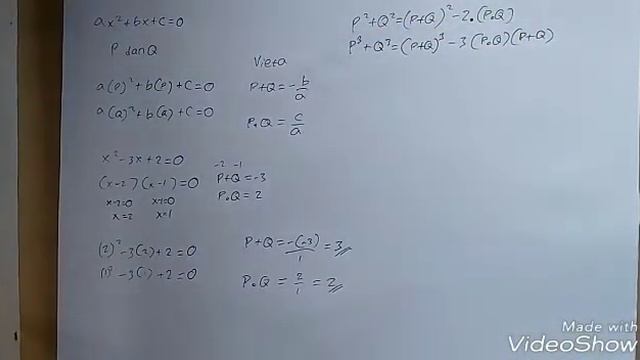 ax² + bx + c = 0
P dan Q
a(P)² + b(P) + c = 0
a(Q)² + b(Q) + c = 0
x² - 3x + 2 = 0
(x-2)(x-1) = 0
x-2=0 x-1=0
x=2 x=1
(2)² - 3(2) + 2 = 0
(1)² - 3(1) + 2 = 0
Vieta
P+Q = -b/a
P.Q = c/a
-2 -1
P+Q = -3
P.Q = 2
P+Q = -(-3)/1 = 3
P.Q = 2/1 = 2
P² + Q² = (P+Q)² - 2.(P.Q)
P³ + Q³ = (P+Q)³ - 3(P.Q)(P+Q)
Made with
VideoShow